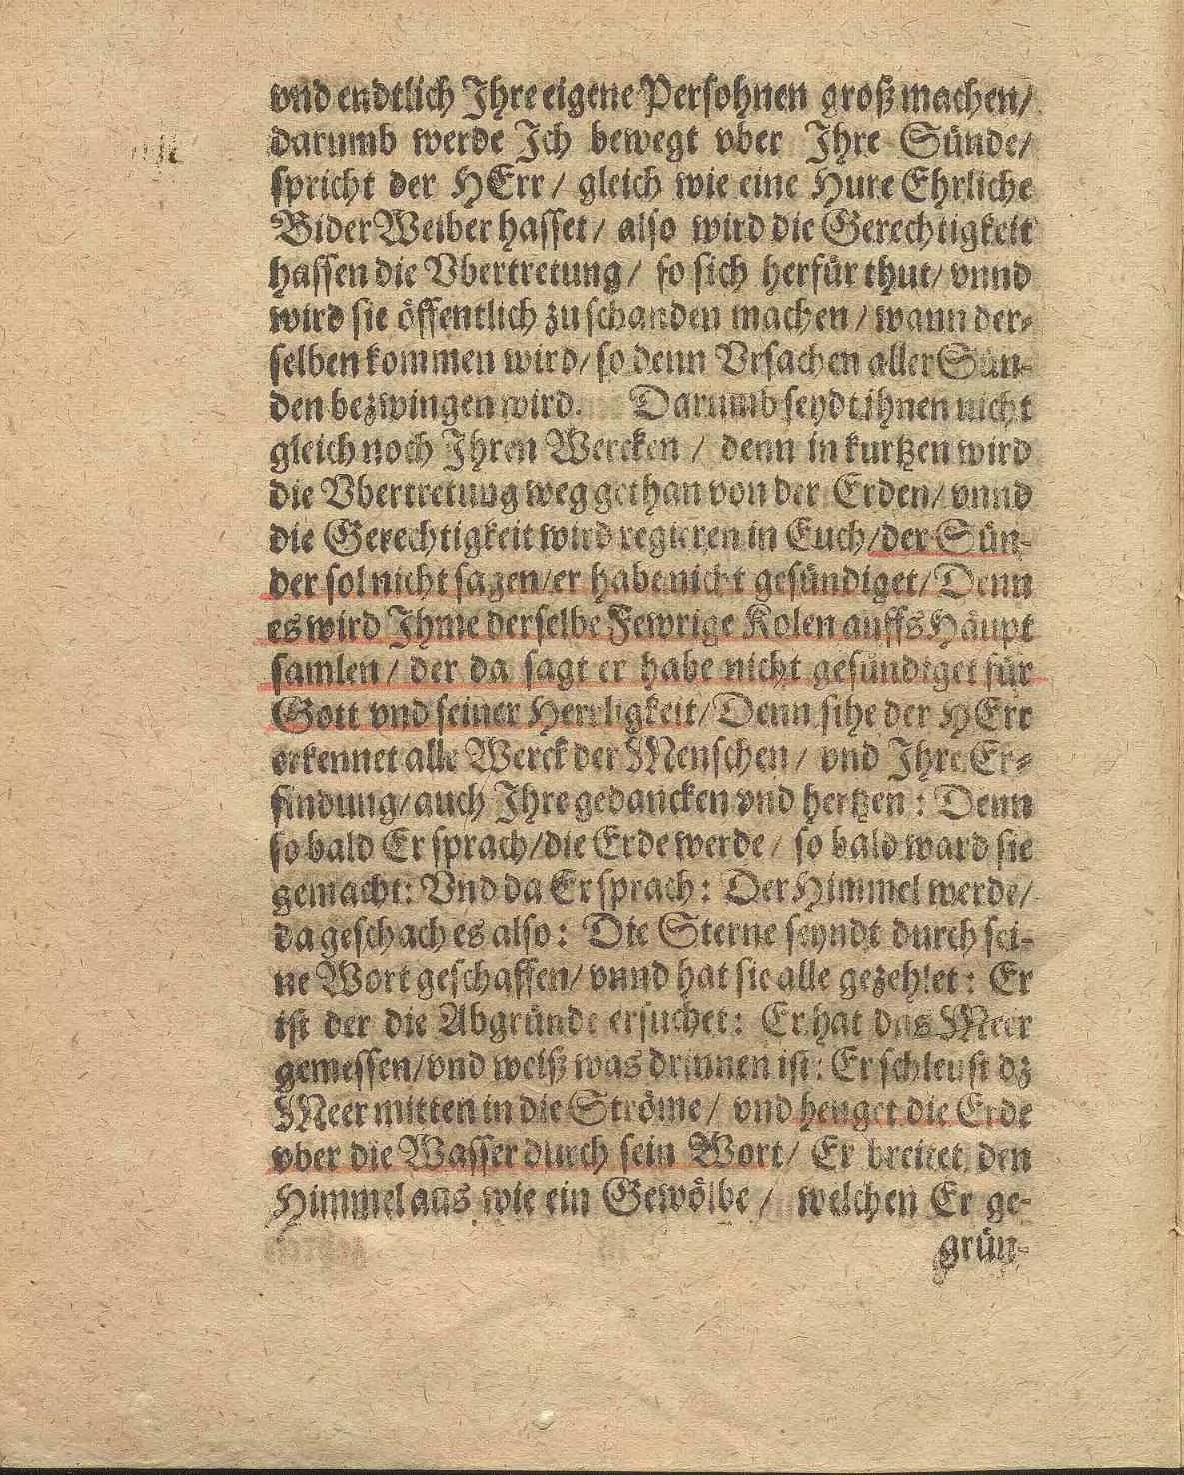 vnd endtlich Jhre eigene Persohnen groß machen/
darumb werde Jch bewegt vber Jhre Sünde/
spricht der HErr/ gleich wie eine Hure Ehrliche
Bider Weiber hasset/ also wird die Gerechtigkeit
hassen die Vbertretung/ so sich herfür thut/ vnnd
wird sie öffentlich zu schanden machen/ wann der-
selben kommen wird/ so denn Vrsachen aller Sün-
den bezwingen wird. Darumb seydt ihnen nicht
gleich noch Jhren Wercken/ denn in kurtzen wird
die Vbertretung weg gethan von der Erden/ vnnd
die Gerechtigkeit wird regieren in Euch/ der Sün-
der sol nicht sagen/ er habe nicht gesündiget/ Denn
es wird Jhme derselbe Fewrige Kolen auffs Häupt
samlen/ der da sagt er habe nicht gesündiget für
Gott vnd seiner Herrligkeit/ Denn sihe der HErr
erkennet alle Werck der Menschen/ vnd Jhre Er-
findung/ auch Jhre gedancken vnd hertzen: Denn
so bald Er sprach/ die Erde werde/ so bald ward sie
gemacht: Vnd da Er sprach: Der Himmel werde/
da geschach es also: Die Sterne seyndt durch sei-
ne Wort geschaffen/ vnnd hat sie alle gezehlet: Er
ist der die Abgründe ersuchet: Er hat das Meer
gemessen/ vnd weiß was drinnen ist: Er schleust dz
Meer mitten in die Ströme/ vnd henget die Erde
vber die Wasser durch sein Wort/ Er breitet den
Himmel aus wie ein Gewölbe/ welchen Er ge-
grün-